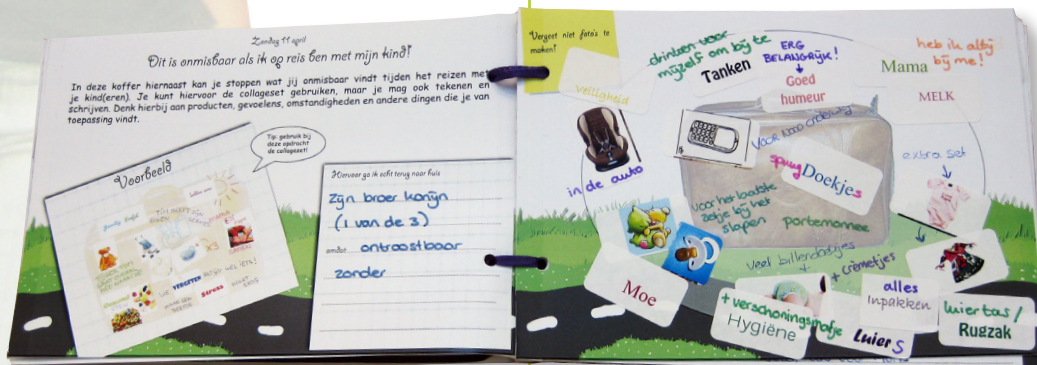 Zondag 11 april
Dit is onmisbaar als ik op reis ben met mijn kind!
In deze koffer hiernaast kan je stoppen wat jij onmisbaar vindt tijden het reizen met
je kind(eren). Je kunt hiervoor de collageset gebruiken, maar je mag ook tekenen en
schrijven. Denk hierbij aan producten, gevoelens, omstandigheden en andere dingen die je van
toepassing vindt.
Tip: gebruik bij
deze opdracht
de collageset!
Voorbeeld
VERGETEN
Stress
Hiervoor ga ik echt terug naar huis
zijn broer konijn
(1 van de 3)
ontroostbaar
zonder
Vergeet niet foto's te
maken!
Veiligheid
drinken voor
mijzelf om bij te
Tanken
ERG
BELANGRIJK!
Goed
humeur
heb ik altijd
Mama bij me!
MELK
in de auto
voor nood onderweg
spuugDoekjes
extra set
voor het laatste
zetje bij het
slapen
portemonnee
veel billendoekjes
+
+ crèmetjes
Moe
+ verschoningsmatje
Hygiëne
alles
Inpakken
Luiers
luiertas/
Rugzak